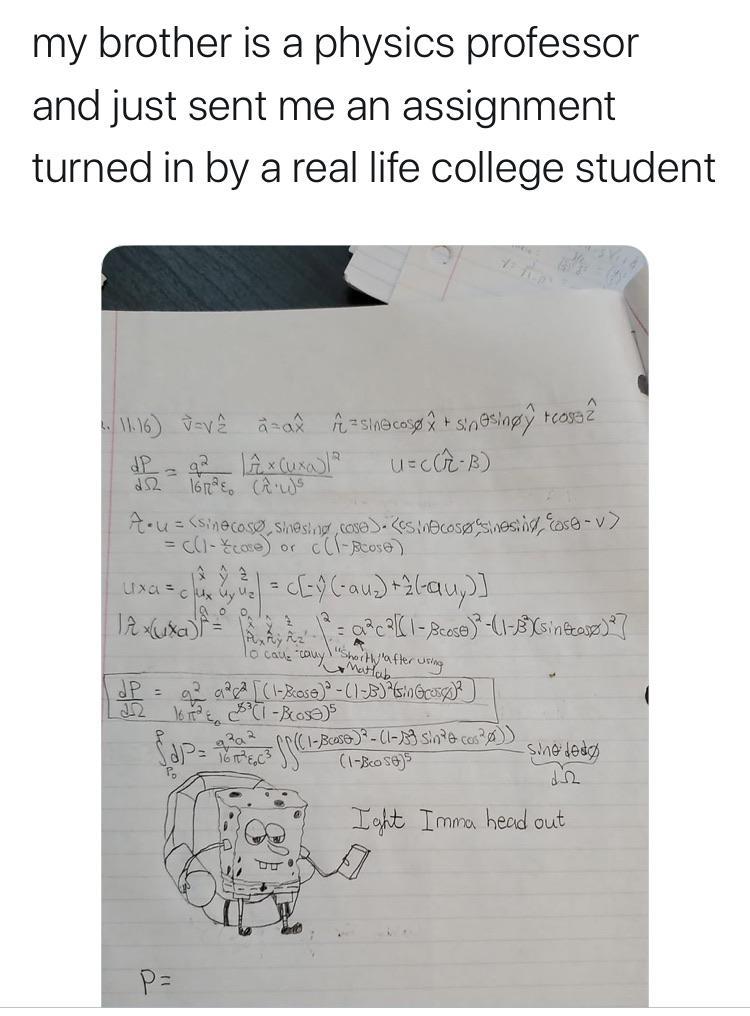 my brother is a physics professor
and just sent me an assignment
turned in by a real life college student
11.16) v⃗=vẑ a⃗=ax̂ r̂=sinθcosø x̂ + sinθsinø ŷ +cosθ ẑ
dP/dΩ = q²/16π²ε₀ |r̂×(u×a)|²/(r̂·u)⁵ u=c(r̂-β)
r̂·u = <sinθcosø, sinθsinø, cosθ>·<csinθcosø, csinθsinø, ccosθ-v>
= c(1-v/c cosθ) or c(1-βcosθ)
u×a = c |x̂ ŷ ẑ; ux uy uz; a 0 0| = c[-ŷ(-auz)+ẑ(-auy)]
|r̂×(u×a)|² = |x̂ ŷ ẑ; r̂x r̂y r̂z; 0 cauz -cauy|² = a²c²[(1-βcosθ)²-(1-β²)(sinθcosø)²]
"Shortly" after using
Matlab
dP/dΩ = q²/16π²ε₀ a²c²[(1-βcosθ)²-(1-β)²(sinθcosø)²]/c⁵³(1-βcosθ)⁵
∫dP = q²a²/16π²ε₀c³ ∫∫((1-βcosθ)²-(1-β²)sin²θcos²ø))/(1-βcosθ)⁵ sinθdθdø
P
P₀
dΩ
Ight Imma head out
P=